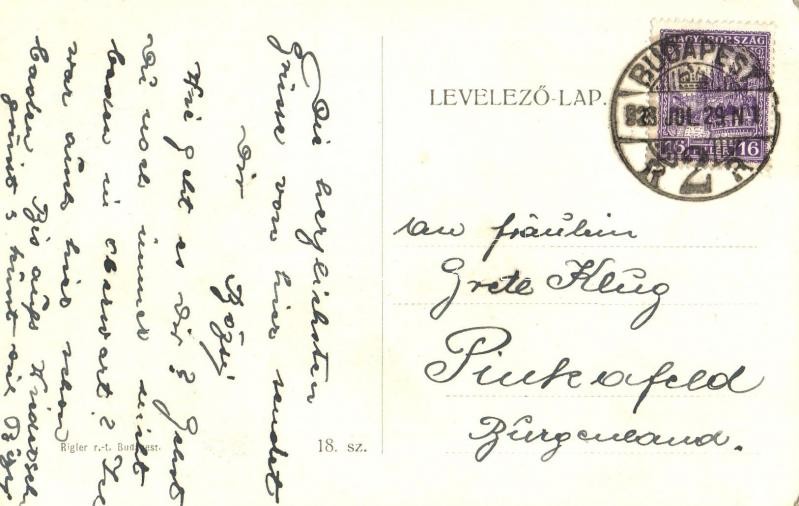 Die herzlichsten
Grüsse von hier sendet
Dir
Bözsi
Wie geht es Dir? Gehst
Du noch immer nicht
baden in Oberwart? Ich
war auch hier schon
baden. Bis aufs
LEVELEZŐ-LAP.
MAGYARORSZÁG
16 16
BUDAPEST
28 JUL. 29. N
2
An Fräulein
Grete Klug
Pinkafeld
Burgenland.
Rigler r.-t. Budapest.
18. sz.